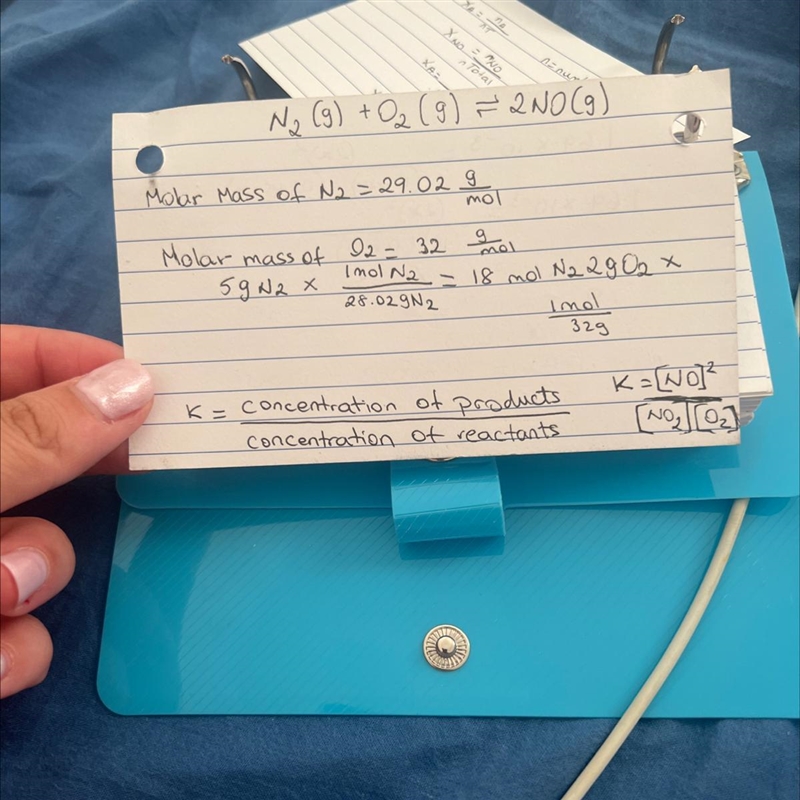 xA = nA
nT
xNO = nNO
nTotal
xA =
N2(g) + O2(g) ⇌ 2NO(g)
Molar Mass of N2 = 29.02 g/mol
Molar mass of O2 = 32 g/mol
5g N2 × 1mol N2/28.02gN2 = 18 mol N2 2gO2 ×
1mol/32g
K = concentration of products
concentration of reactants
K = [NO]²
[NO2][O2]